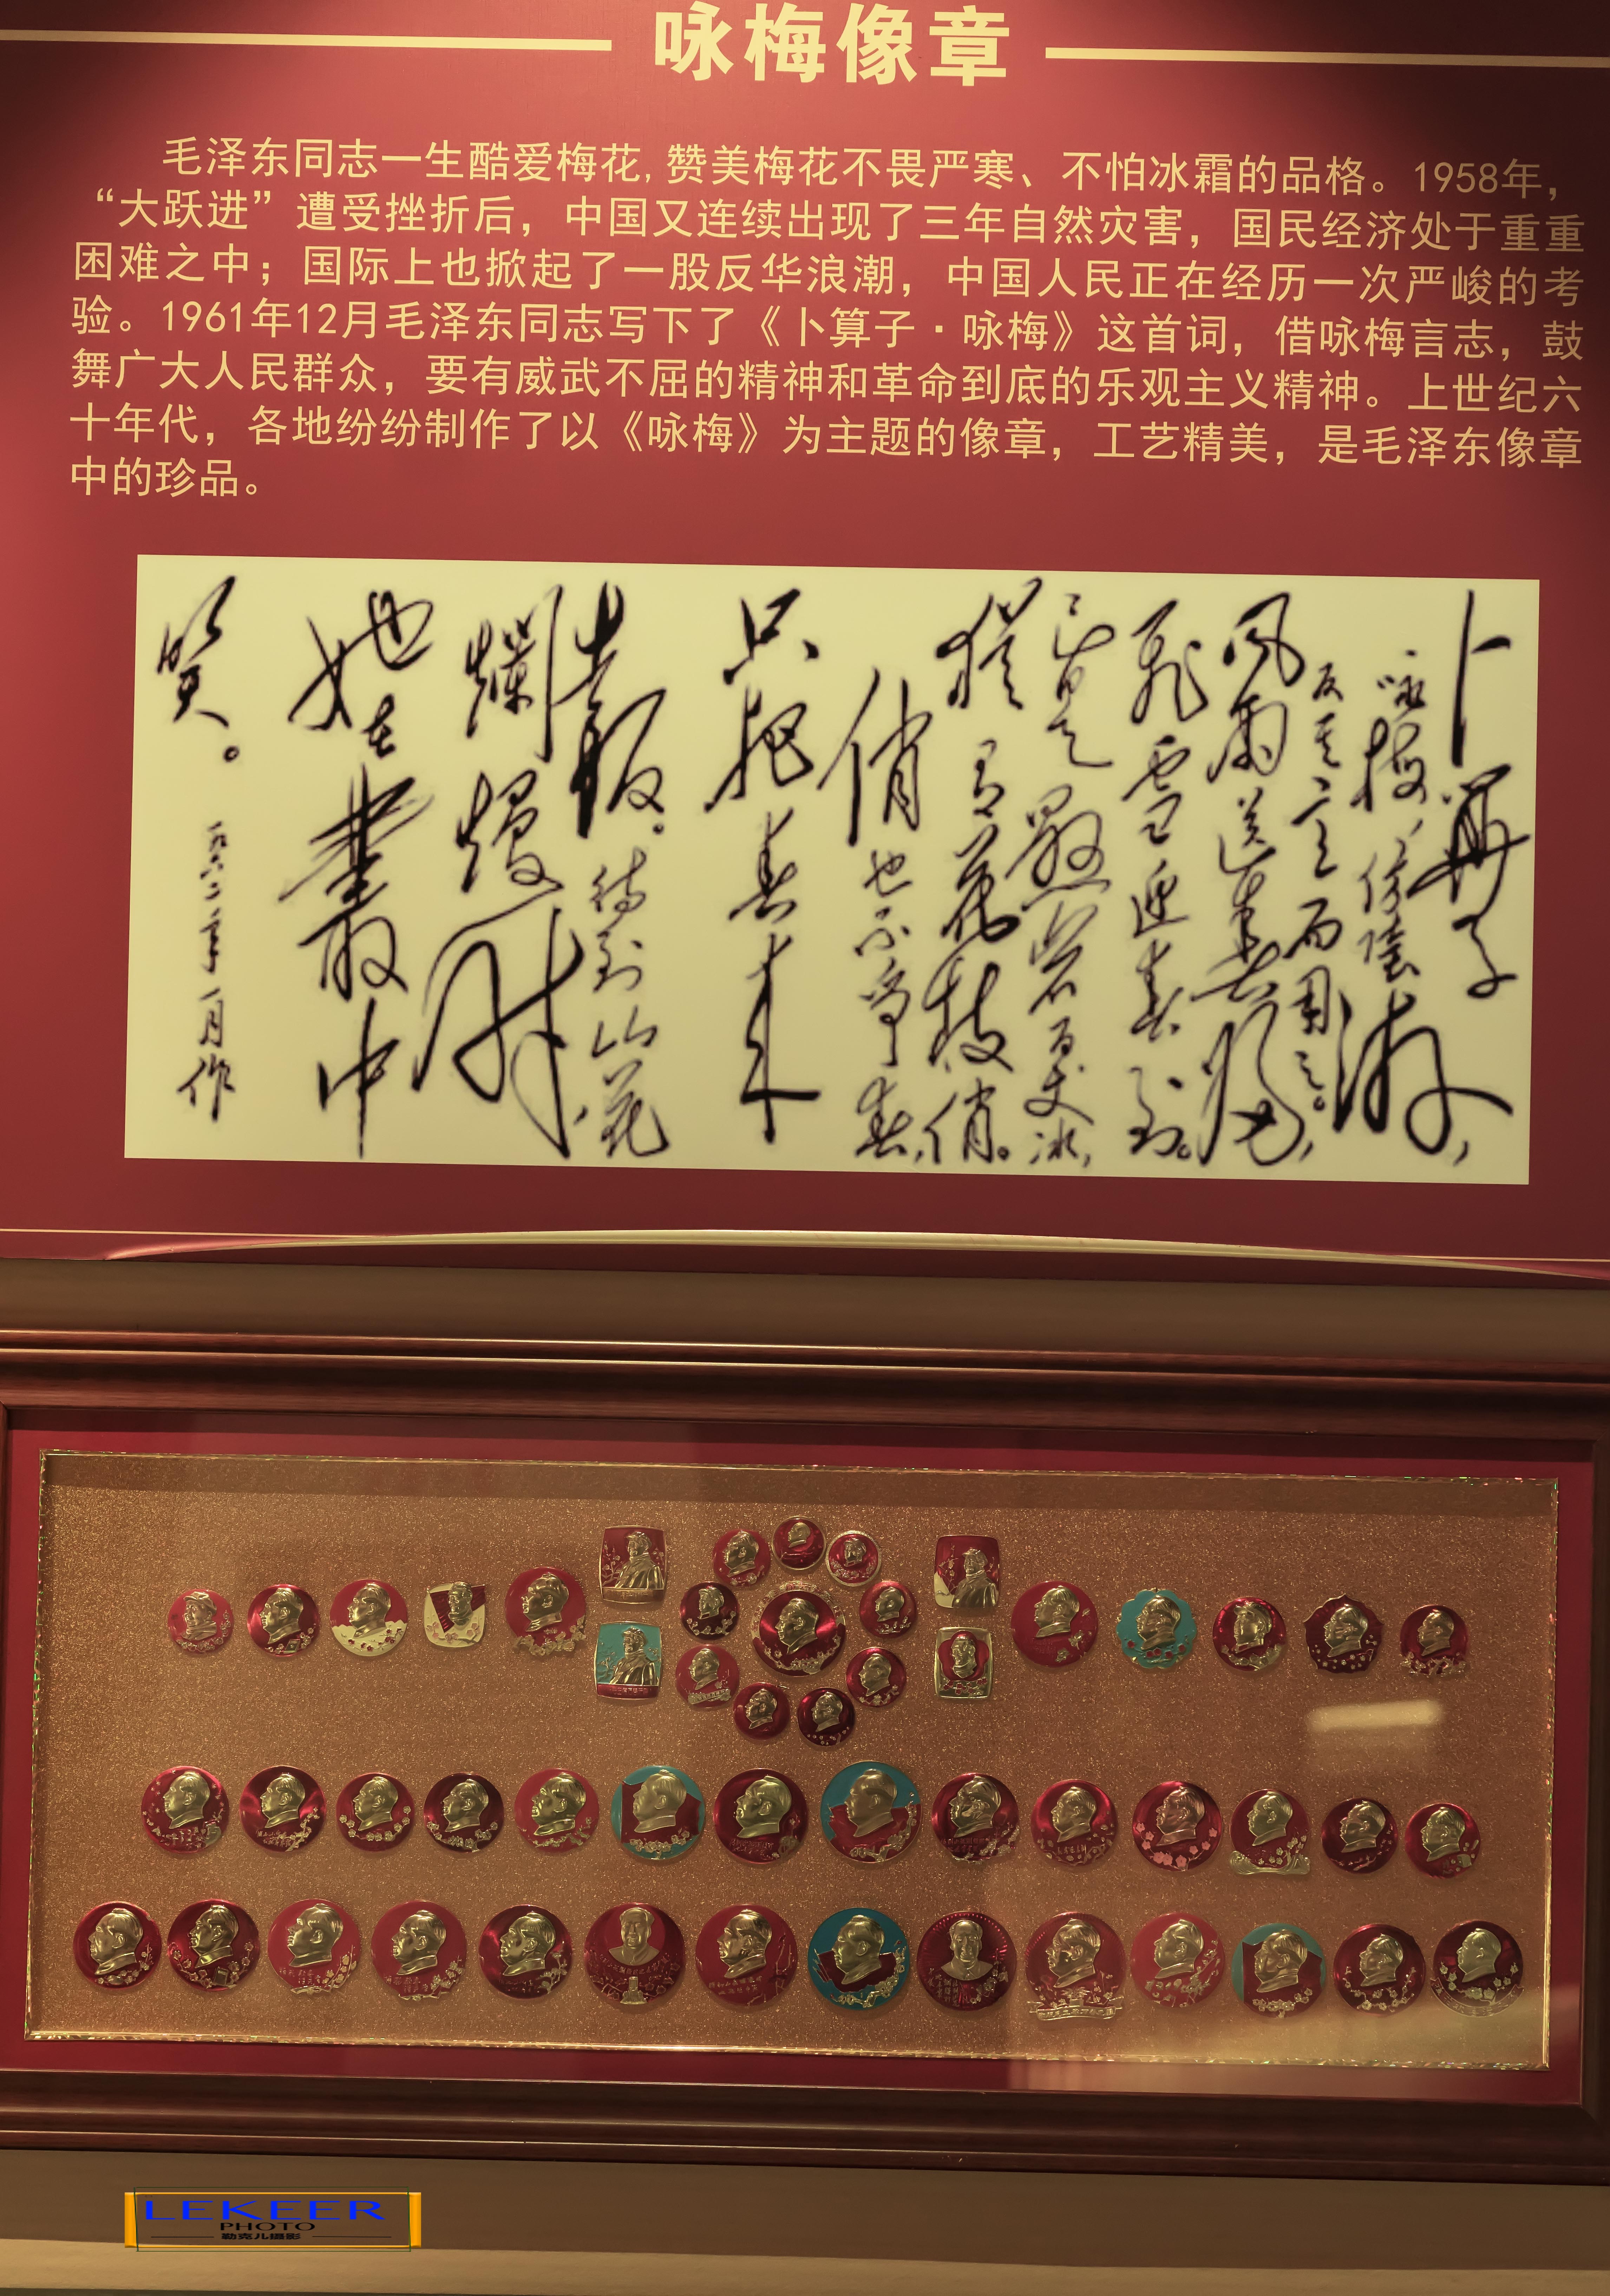 咏梅像章
毛泽东同志一生酷爱梅花,赞美梅花不畏严寒、不怕冰霜的品格。1958年，
“大跃进”遭受挫折后，中国又连续出现了三年自然灾害，国民经济处于重重
困难之中；国际上也掀起了一股反华浪潮，中国人民正在经历一次严峻的考
验。1961年12月毛泽东同志写下了《卜算子·咏梅》这首词，借咏梅言志，鼓
舞广大人民群众，要有威武不屈的精神和革命到底的乐观主义精神。上世纪六
十年代，各地纷纷制作了以《咏梅》为主题的像章，工艺精美，是毛泽东像章
中的珍品。
卜算子
咏梅，仿陸游，
反其意而用之。
风雨送春歸，
飛雪迎春到。
已是懸岩百丈冰，
猶有花枝俏。
俏也不争春，
只把春来
報。待到山花
爛熳時，
她在叢中
笑。
LEKEER
PHOTO
勒克儿摄影